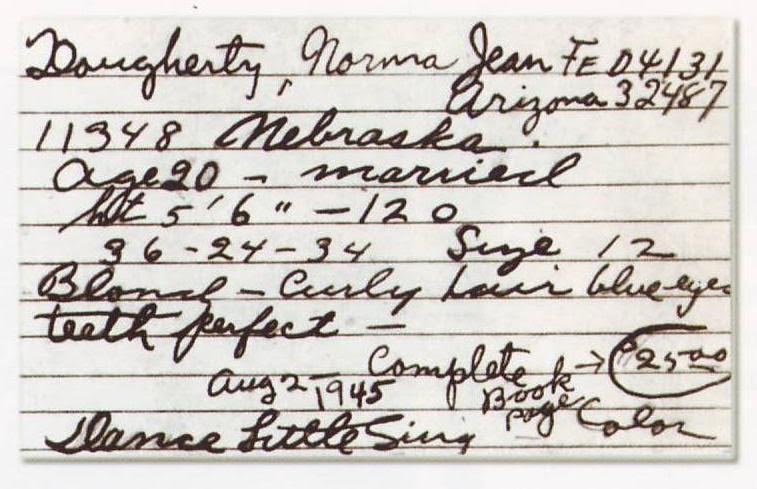 Dougherty, Norma Jean FE D4131
Arizona 32487
11348 Nebraska.
age 20 - married
ht 5'6" - 120
36-24-34 Size 12
Blond - Curly hair blue-eyes
teeth perfect -
Aug 2, 1945 Complete → $25.00
Book
page Color
Dance Little Sing